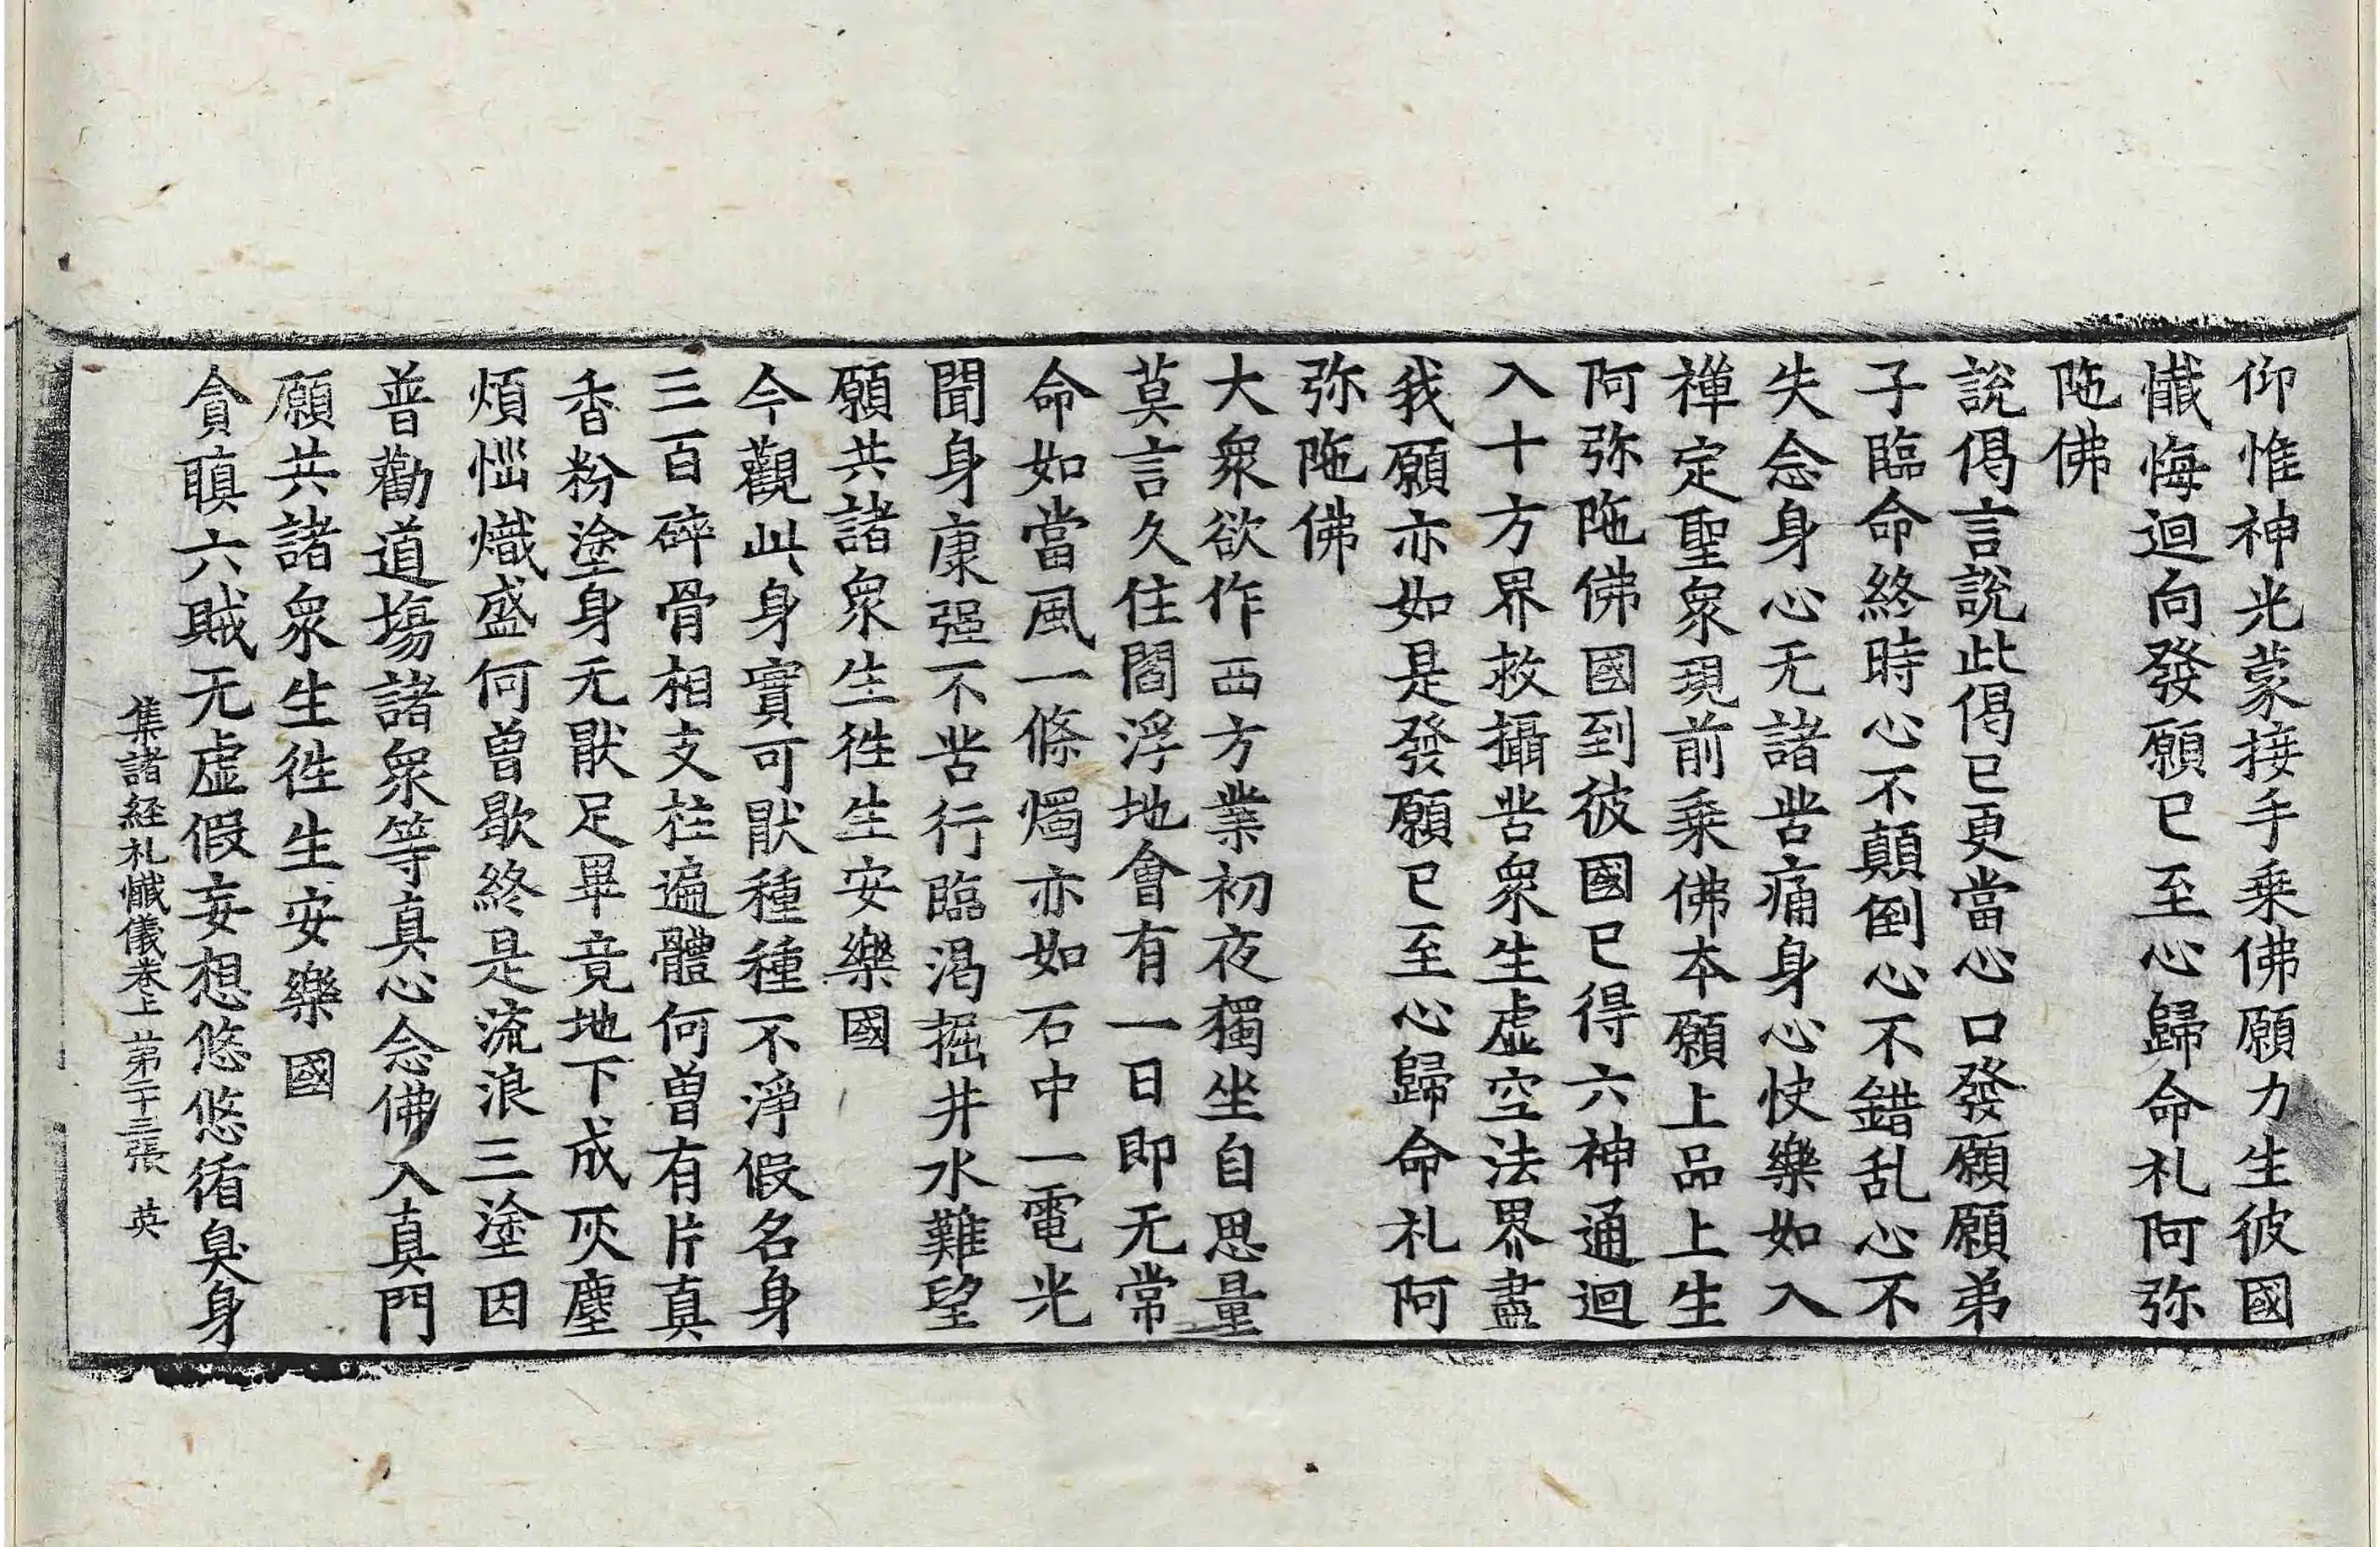 仰惟神光蒙接手乗佛願力生彼國
懴悔迴向發願已至心歸命礼阿弥
陁佛
說偈言說此偈已更當心口發願願弟
子臨命終時心不顛倒心不錯乱心不
失念身心无諸苦痛身心快樂如入
禅定聖衆現前乗佛本願上品上生
阿弥陁佛國到彼國已得六神通迴
入十方界救攝苦衆生虚空法界盡
我願亦如是發願已至心歸命礼阿
弥陁佛
大衆欲作西方業初夜獨坐自思量
莫言久住閻浮地會有一日即无常
命如當風一條燭亦如石中一電光
聞身康强不苦行臨渇掘井水難望
願共諸衆生徃生安樂國
今觀此身實可猒種種不淨假名身
三百碎骨相支柱遍體何曽有片真
香粉塗身无猒足畢竟地下成灰塵
煩惱熾盛何曽歇終是流浪三塗因
普勸道塲諸衆等真心念佛入真門
願共諸衆生徃生安樂國
貪瞋六賊无虚假妄想悠悠循臭身
集諸経礼懴儀卷上 苐二十三張 英